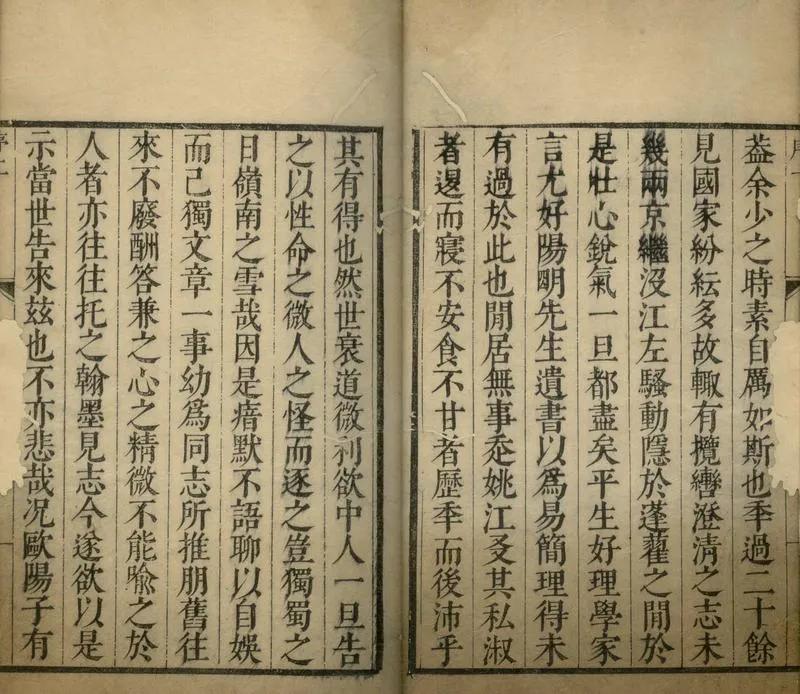 盖余少之時素自厲如斯也季過二十餘
見國家紛紜多故輙有攬轡澄清之志未
幾兩京繼沒江左騷動隱於蓬藋之閒於
是壯心銳氣一旦都盡矣平生好理學家
言尤好陽明先生遺書以爲易簡理得未
有過於此也閒居無事走姚江交其私淑
者退而寢不安食不甘者歷季而後沛乎
其有得也然世衰道微利欲中人一旦告
之以性命之微人之怪而逐之豈獨蜀之
日嶺南之雪哉因是瘖默不語聊以自娛
而已獨文章一事幼爲同志所推朋舊往
來不廢酬答兼之心之精微不能喻之於
人者亦往往托之翰墨見志今遂欲以是
示當世告來茲也不亦悲哉况歐陽子有